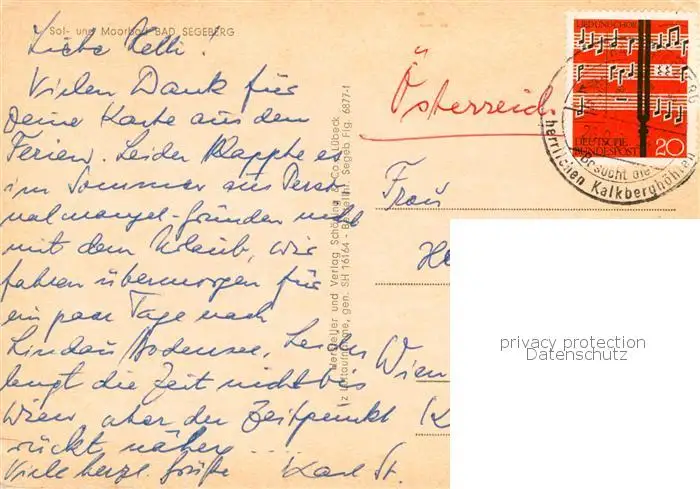 Sol- und Moorbad BAD SEGEBERG
Liebe Kelli!
Vielen Dank für
Deine Karte aus den
Ferien. Leider klappte es
im Sommer aus Perso-
nalmangel-Gründen nicht
mit dem Urlaub, wir
fahren übermorgen für
ein paar Tage nach
Lindau/Bodensee. Leider
langt die Zeit nicht bis
Wien, aber der Zeitpunkt
rückt näher....
Viele herzl. Grüße Karl St.
Hersteller und Verlag Schöning & Co Lübeck
z Luftaufnahme, gen. SH 16164 - Bestellnr. Segeb Fig. 6877-f
LIED UND CHOR
DEUTSCHE
BUNDESPOST 20
Besucht die
herrlichen Kalkberghöhlen
Österreich
Frau
He
Wien
privacy protection
Datenschutz